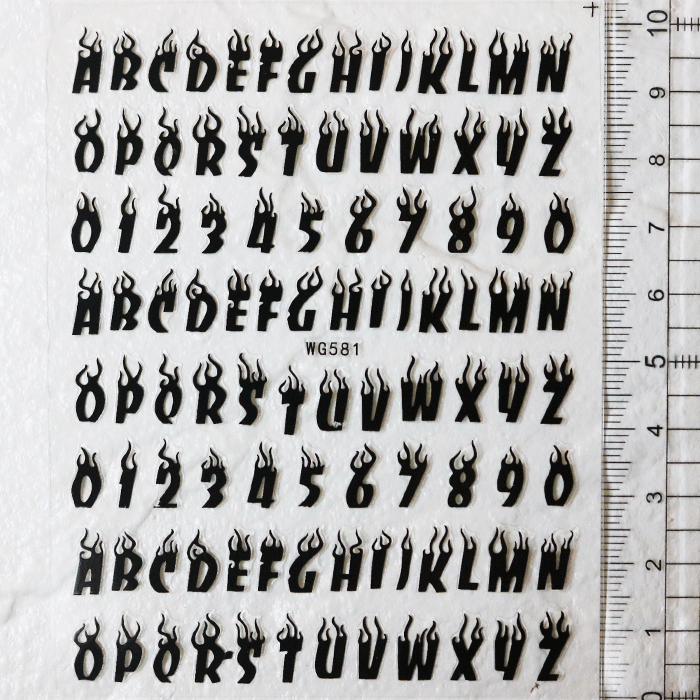 A B C D E F G H I J K L M N
O P Q R S T U V W X Y Z
0 1 2 3 4 5 6 7 8 9 0
A B C D E F G H I J K L M N
WG581
O P Q R S T U V W X Y Z
0 1 2 3 4 5 6 7 8 9 0
A B C D E F G H I J K L M N
O P Q R S T U V W X Y Z
10
9
8
7
6
5
4
3
2
1
0